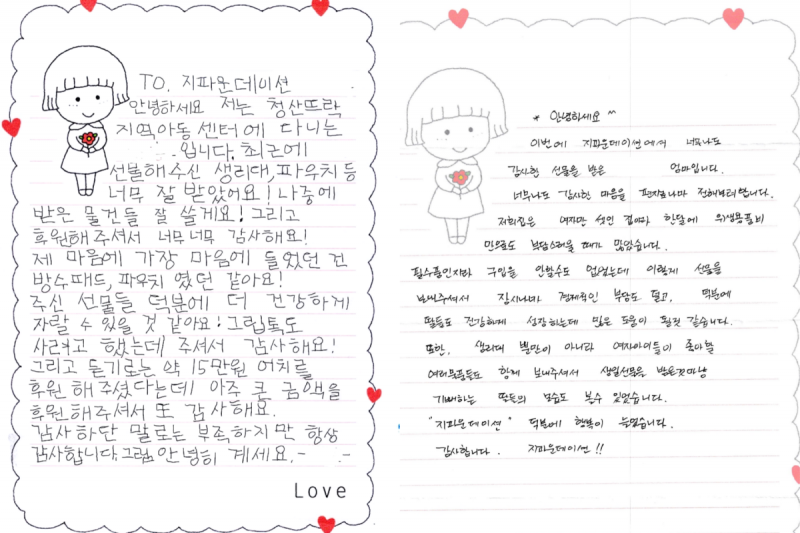 TO. 지파운데이션
안녕하세요 저는 청산뜨락
지역아동센터에 다니는
입니다. 최근에
선물해주신 생리대, 파우치 등
너무 잘 받았어요! 나중에
받은 물건들 잘 쓸게요! 그리고
후원해주셔서 너무너무 감사해요!
제 마음에 가장 마음에 들었던 건
방수패드, 파우치 였던 같아요!
주신 선물들 덕분에 더 건강하게
자랄 수 있을 것 같아요! 그립톡도
사려고 했는데 주셔서 감사해요!
그리고 듣기로는 약 15만원 어치를
후원해주셨다는데 아주 큰 금액을
후원해주셔서 또 감사해요.
감사하단 말로는 부족하지만 항상
감사합니다. 그럼 안녕히 계세요.-
Love
* 안녕하세요 ^^
이번에 지파운데이션에서 너무나도
감사한 선물을 받은 엄마입니다.
너무나도 감사한 마음을 편지로나마 전해드려봅니다.
저희집은 여자만 셋인 집이라 한달에 위생용품비
만으로도 부담스러울 때가 많았습니다.
필수품인지라 구입을 안할수도 없었는데 이렇게 선물을
보내주셔서 잠시나마 경제적인 부담도 덜고, 덕분에
딸들도 건강하게 성장하는데 많은 도움이 될것 같습니다.
또한, 생리대 뿐만이 아니라 여자아이들이 좋아할
여러물품들도 함께 보내주셔서 생일선물을 받은것마냥
기뻐하는 딸들의 모습도 볼수 있었습니다.
"지파운데이션" 덕분에 행복이 늘었습니다.
감사합니다. 지파운데이션!!